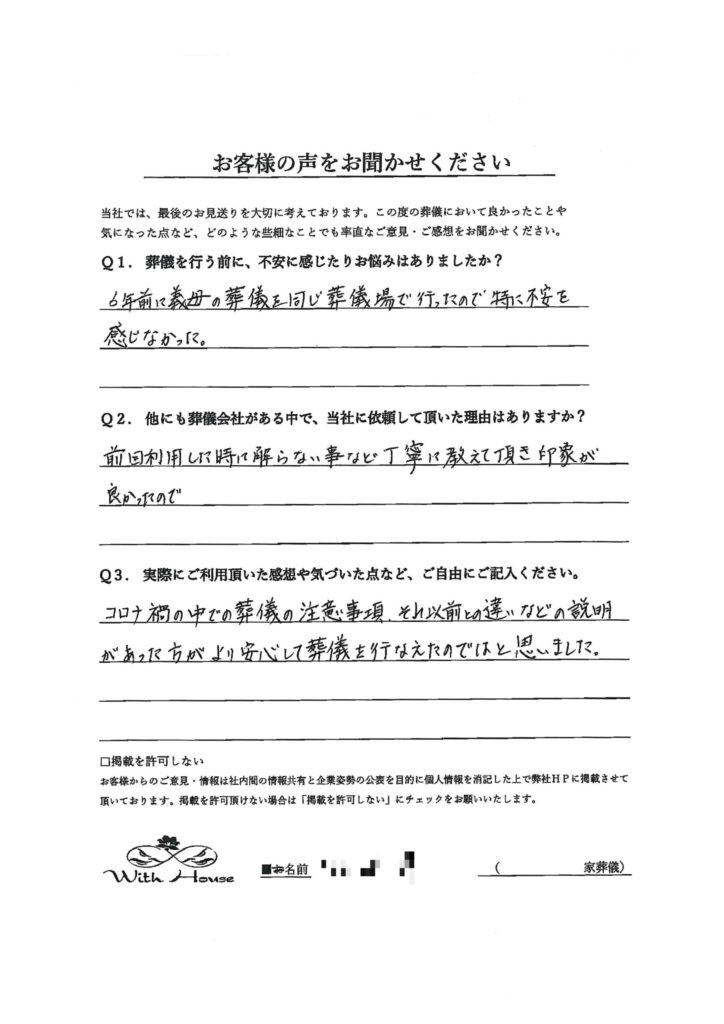 お客様の声をお聞かせください
当社では、最後のお見送りを大切に考えております。この度の葬儀において良かったことや
気になった点など、どのような些細なことでも率直なご意見・ご感想をお聞かせください。
Q1. 葬儀を行う前に、不安に感じたりお悩みはありましたか？
6年前に義母の葬儀を同じ葬儀場で行ったので特に不安を
感じなかった。
Q2. 他にも葬儀会社がある中で、当社に依頼して頂いた理由はありますか？
前回利用した時に解らない事など丁寧に教えて頂き印象が
良かったので
Q3. 実際にご利用頂いた感想や気づいた点など、ご自由にご記入ください。
コロナ禍の中での葬儀の注意事項、それ以前との違いなどの説明
があった方がより安心して葬儀を行なえたのではと思いました。
□掲載を許可しない
お客様からのご意見・情報は社内間の情報共有と企業姿勢の公表を目的に個人情報を消記した上で弊社HPに掲載させて
頂いております。掲載を許可頂けない場合は「掲載を許可しない」にチェックをお願いいたします。
With House
■お名前
( 家葬儀)